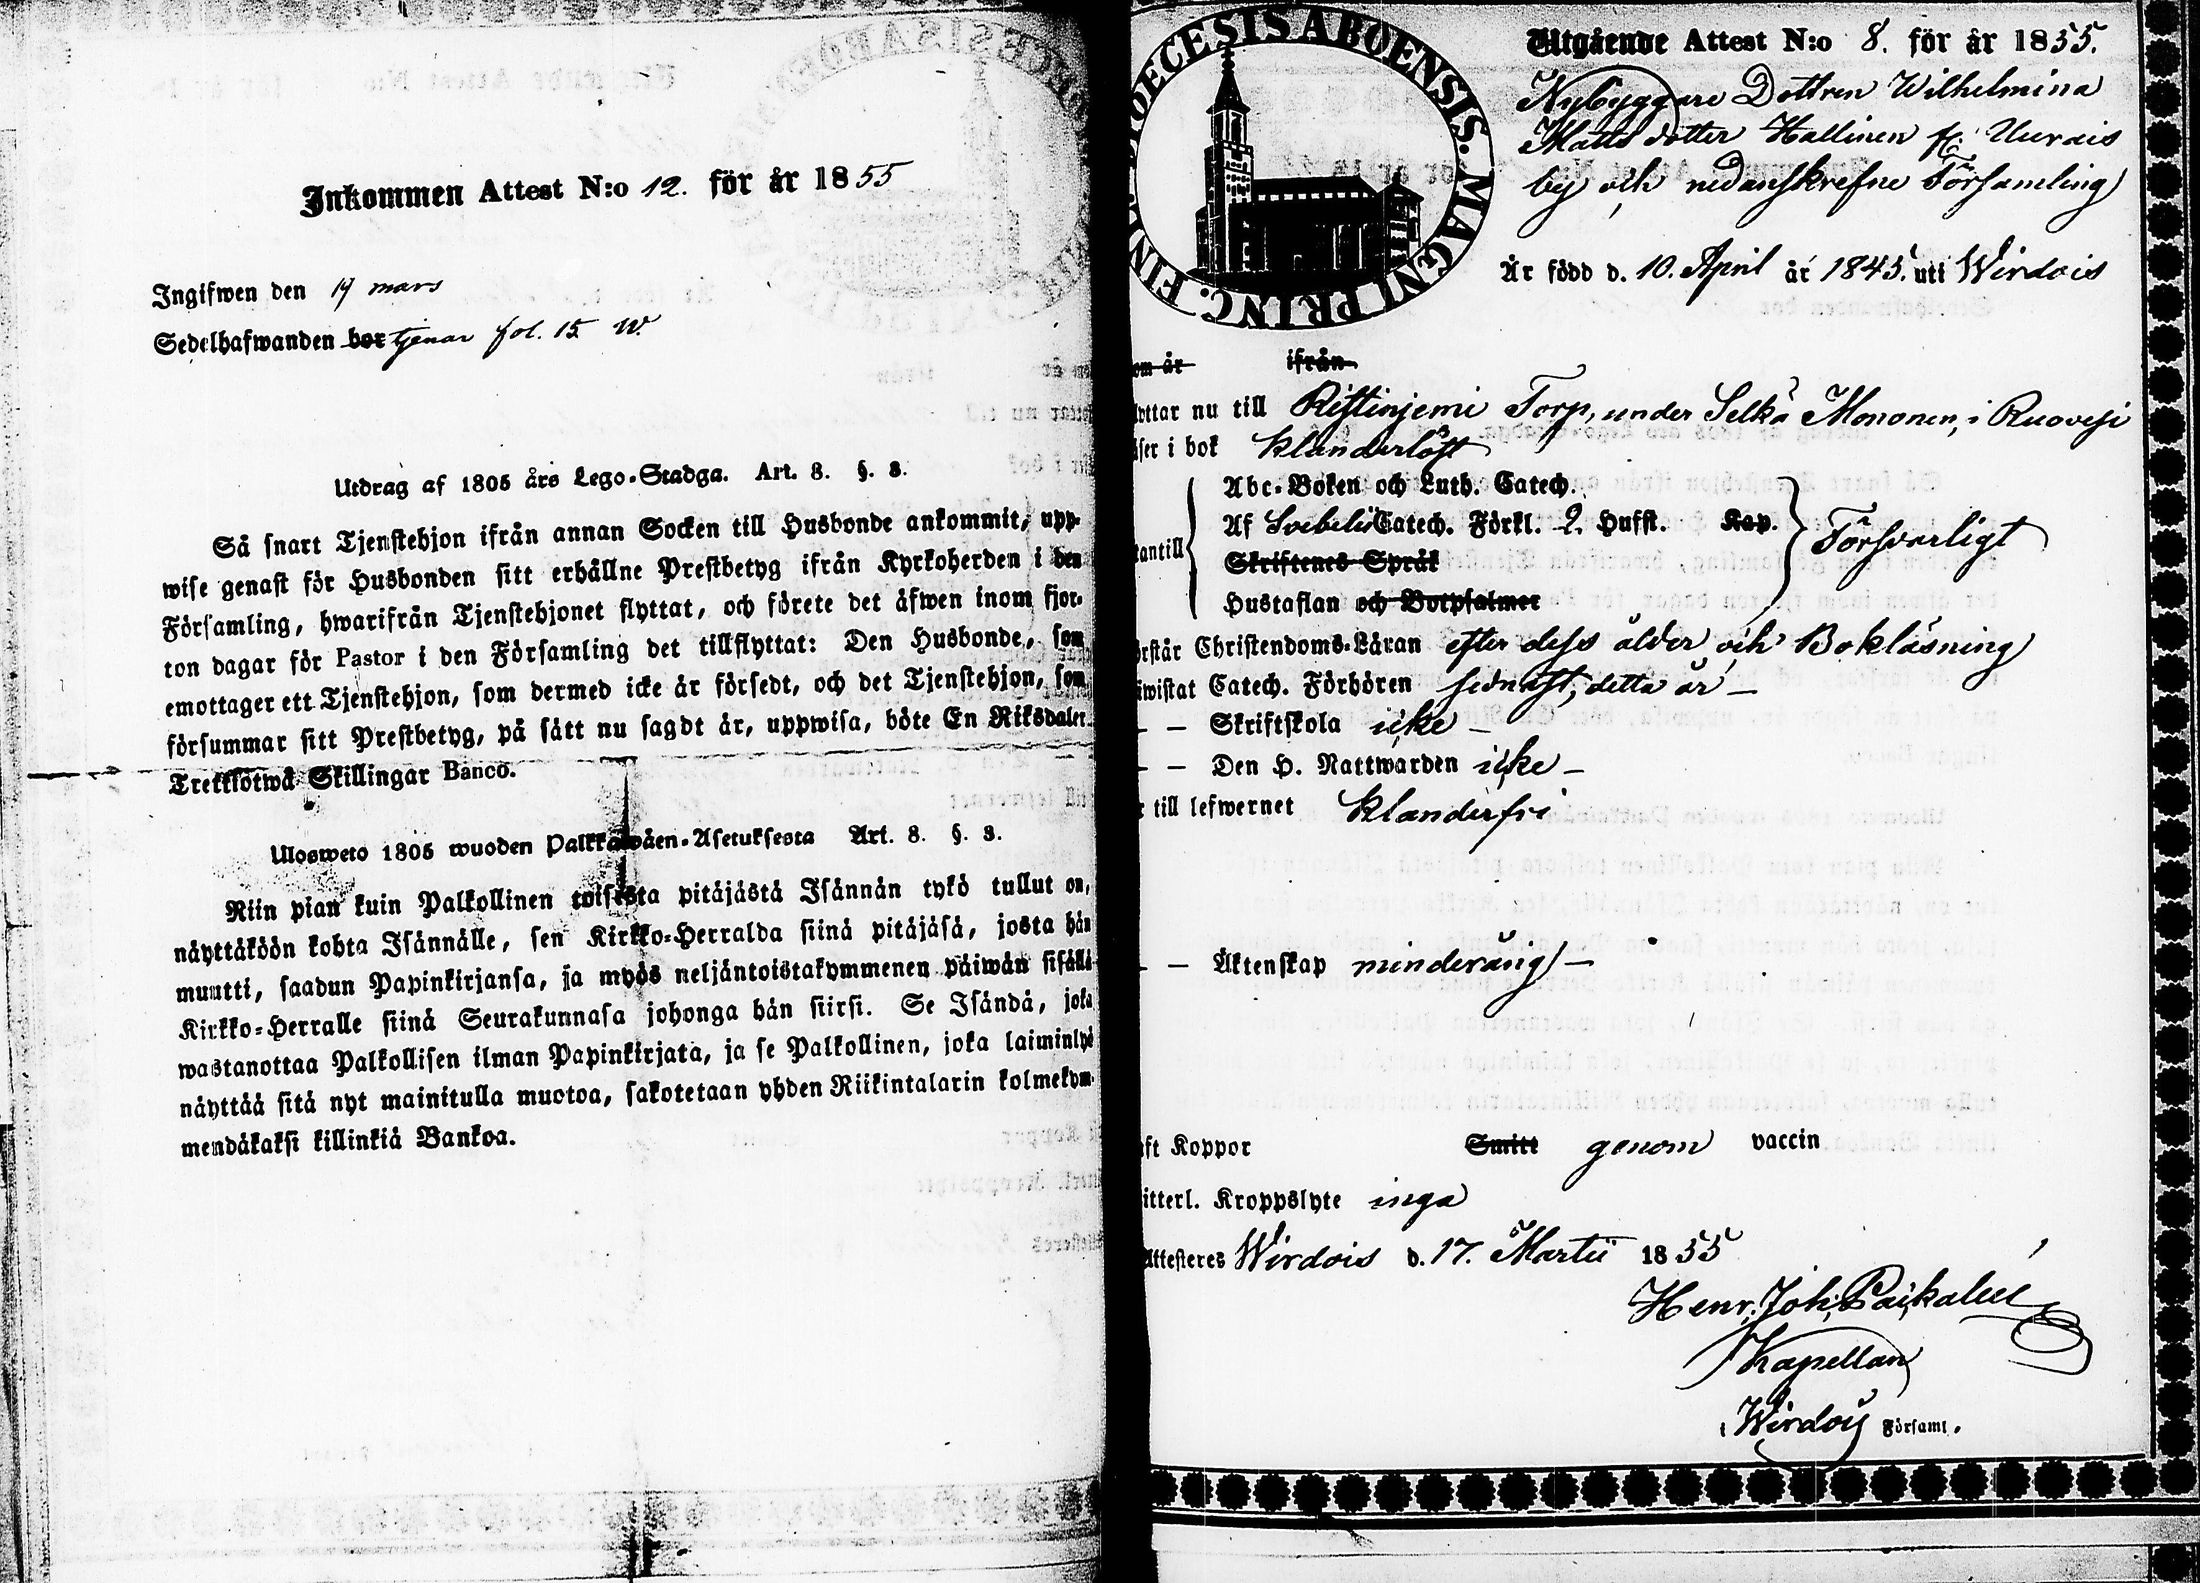 Inkommen Attest N:o 12. för år 1855
Ingifwen den 19 mars
Sedelhafwanden bor tjenar fol. 15 W.
Utdrag af 1805 års Lego-Stadga. Art. 8. §. 3.
Så snart Tjenstehjon ifrån annan Socken till Husbonde ankommit, upp-
wise genast för Husbonden sitt erhållne Prestbetyg ifrån Kyrkoherden i den
Församling, hwarifrån Tjenstehjonet flyttat, och förete det äfwen inom fjor-
ton dagar för Pastor i den Församling det tillflyttat: Den Husbonde, som
emottager ett Tjenstehjon, som dermed icke är försedt, och det Tjenstehjon, som
försummar sitt Prestbetyg, på sätt nu sagdt är, uppwisa, böte En Riksdaler
Trettiotwå Skillingar Banco.
Ulosweto 1805 wuoden Palkkawäen-Asetuksesta Art. 8. §. 3.
Niin pian kuin Palkollinen toisesta pitäjästä Isännän tykö tullut on,
näyttäköön kohta Isännälle, sen Kirkko-Herralda siinä pitäjäsä, josta hän
muutti, saadun Papinkirjansa, ja myös neljäntoistakymmenen päiwän sisällä
Kirkko-Herralle siinä Seurakunnasa johonga hän siirsi. Se Isändä, joka
wastanottaa Palkollisen ilman Papinkirjata, ja se Palkollinen, joka laiminlyö
näyttää sitä nyt mainitulla muotoa, sakotetaan yhden Riikintalarin kolmekym-
mendäkaksi killinkiä Bankoa.
DIOECESIS ABOENSIS. MAGNI PRINC. FINL.
Utgående Attest N:o 8. för år 1855.
Nybyggare Dottren Wilhelmina
Matts dotter Hallinen fr: Uurais
by och nedanskrefne Församling
Är född d. 10. April år 1845. uti Wirdois
om år ifrån
lyttar nu till Ristinjemi Torp, under Selkä Mononen, i Ruovesi
äser i bok klanderlöst
Abc-Boken och Luth. Catech.
Af Svebelii Catech. Förkl. 2. Hufst. Kap.
utantill Försvarligt
Skriftenes Språk
Hustaflan och Botpsalmer
örstår Christendoms-Läran efter dess ålder och Bokläsning
iwistat Catech. Förhören sednast, detta år –
– – Skriftskola icke –
– – Den H. Nattwarden icke –
r till lefwernet klanderfri
– – Äktenskap minderårig –
aft Koppor Smitt genom vaccin
itterl. Kroppslyte inga
Attesteres Wirdois d. 17. Martii 1855
Henr. Joh. Paikalus
Kapellan
i Wirdois Församl.